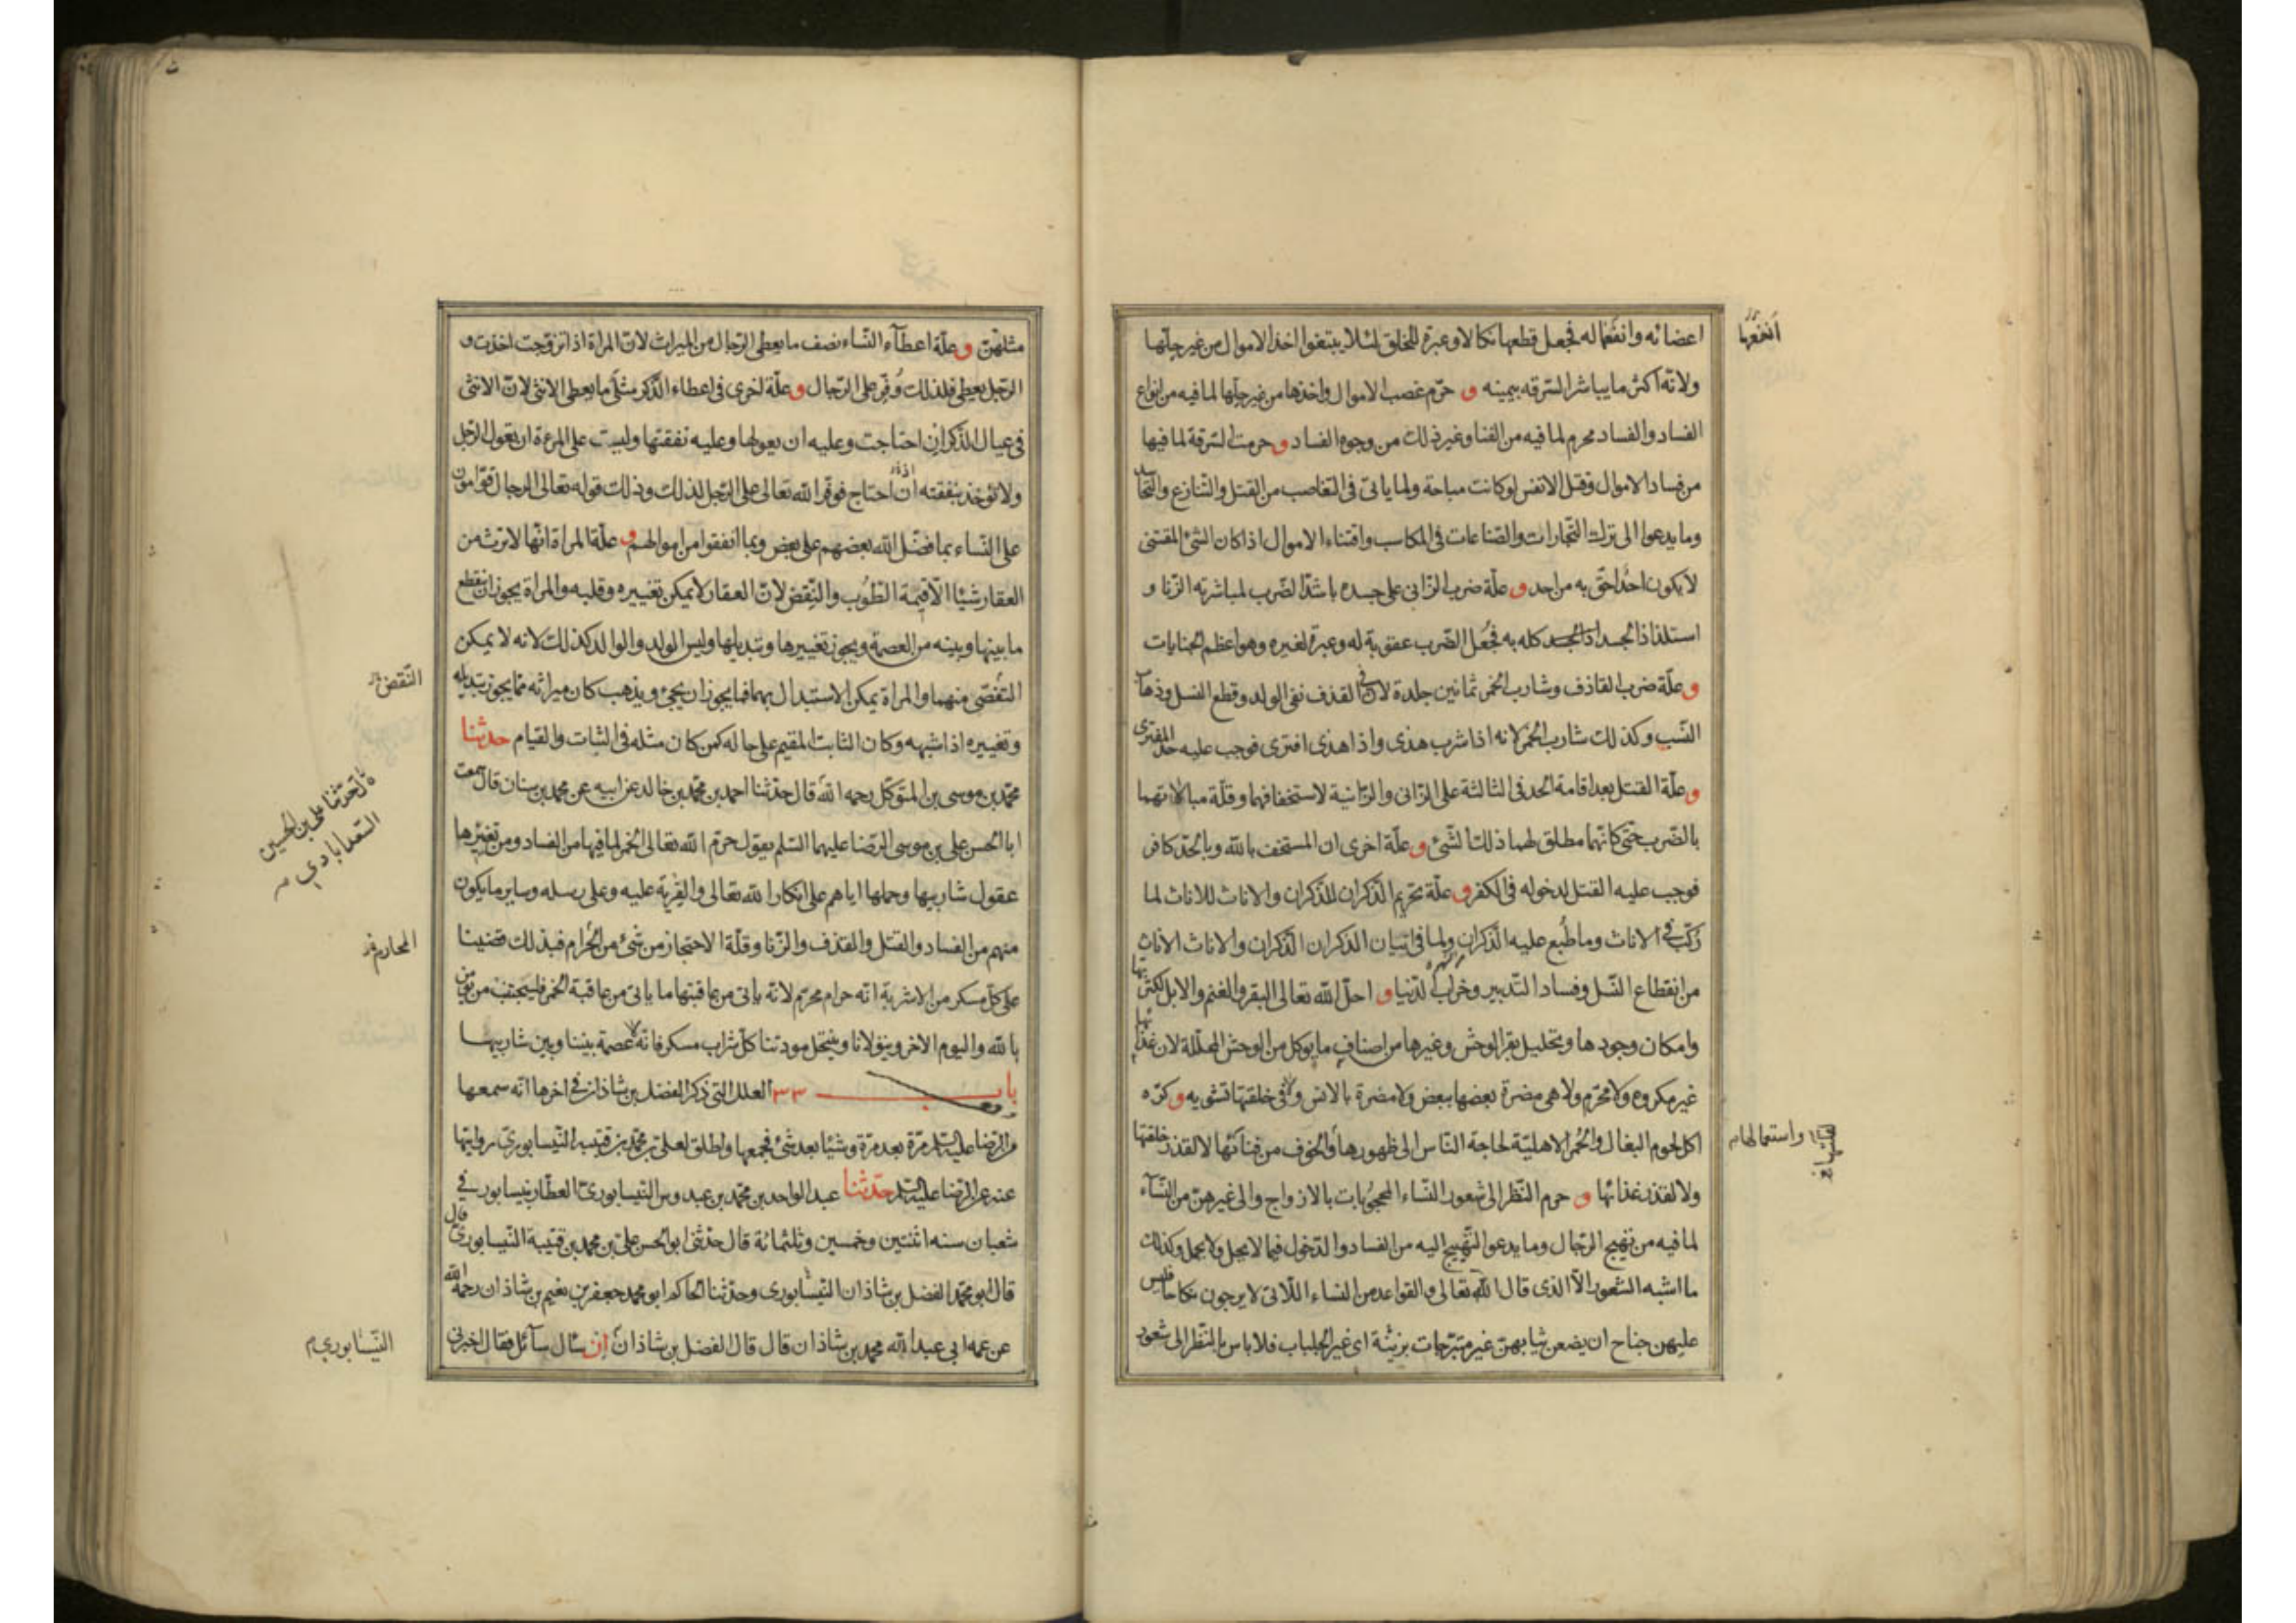 اعضائه وانفعها له فجعل قطعها نكالا وعبرة للخلق لئلا يبتغوا اخذ الاموال من غير حلّها
ولانّه اكثر ما يباشر السرقه بيمينه و حرّم غصب الاموال واخذها من غير حلّها لما فيه من انواع
الفساد والفساد محرم لما فيه من الفنا وغير ذلك من وجوه الفساد و حرمت السّرقة لما فيها
من فساد الاموال وقتل الانفس لو كانت مباحة ولما ياتى فى التغاصب من القتل والتّنازع والتّحاسد
وما يدعوا الى ترك التّجارات والصّناعات فى المكاسب واقتناء الاموال اذا كان الشئ المقتنى
لا يكون احد احقّ به من احد و علّة ضرب الزّانى على جسده باشدّ الضّرب لمباشرته الزّنا و
استلذاذ الجسد كله به فجُعل الضّرب عقوبة له وعبرة لغيره وهو اعظم الجنايات
و علّة ضرب القاذف وشارب الخمر ثمانين جلدة لانّ فى القذف نفى الولد وقطع النسل وذهاب
النّسب وكذلك شارب الخمر لانه اذا شرب هذى واذا هذى افترى فوجب عليه حدّ المفترى
و علّة القتل بعد اقامة الحد فى الثالثة على الزّانى والزّانية لاستخفافهما وقلّة مبالاتهما
بالضّرب حتى كانّهما مطلق لهما ذلك الشّئ و علّة اخرى ان المستخف بالله وبالحدّ كافر
فوجب عليه القتل لدخوله فى الكفر و علّة تحريم الذّكران للذّكران والاناث للاناث لما
رُكّب فى الاناث وما طُبع عليه الذّكران ولما فى اتيان الذكران الذّكران والاناث الاناث
من انقطاع النّسل وفساد التّدبير وخراب الدّنيا و احلّ الله تعالى البقر والغنم والابل لكثرتها
وامكان وجودها وتحليل بقر الوحش وغيرها من اصناف ما يوكل من الوحش المحلّلة لان غذائها
غير مكروه ولا محرّم ولا هى مضرة بعضها ببعض ولا مضرة بالانس ولا فى خلقتها تشويه و كرّه
اكل لحوم البغال والحُمر الاهليّة لحاجة النّاس الى ظهورها والخوف من فنائها لا لقذر خلقتها
ولا لقذر غذائها و حرم النّظر الى شعور النّساء المحجوبات بالازواج والى غيرهنّ من النّسآء
لما فيه من تهييج الرّجال وما يدعو التّهييج اليه من الفساد والدّخول فيما لا يحل ولا يجمل وكذلك
ما اشبه الشعور الّا الذى قال الله تعالى والقواعد من النساء اللّاتى لا يرجون نكاحا فليس
عليهن جناح ان يضعن ثيابهنّ غير متبّرجات بزينة اى غير الجلباب فلا باس بالنّظر الى شعور
انفعها
واستعمالهام
مثلهنّ و علّة اعطآء النّساء نصف ما يعطى الرّجال من الميراث لانّ المراة اذا تزوّجت اخذت و
الرّجل يعطى فلذلك وُفّر على الرّجال و علّة اخرى فى اعطاء الذّكر مثلَى ما يعطى الانثى لانّ الانثى
فى عيال الذّكر ان احتاجت وعليه ان يعولها وعليه نفقتها وليست على المرءة ان تعول الرّجل
ولا تؤخذ بنفقته ان احتاج فوفّر الله تعالى على الرّجل لذلك وذلك قوله تعالى الرجال قوّامون
على النّساء بما فضّل الله بعضهم على بعض وبما انفقوا من اموالهم و علّة المراة انّها لا ترث من
العقار شيئا الّا قيمة الطّوُب والنّقض لانّ العقار لا يمكن تغييره وقلبه والمراة يجوز ان ينقطع
ما بينها وبينه من العصمة ويجوز تغييرها وتبديلها وليس الولد والوالد كذلك لانه لا يمكن
التّفصّى منهما والمراة يمكن الاستبدال بها فما يجوز ان يجئ ويذهب كان ميراثه ممّا يجوز تبديله
وتغييره اذا شبهه وكان الثابت المقيم على حاله كمن كان مثله فى الثبات والقيام حدثنا
محمّد بن موسى بن المتوكّل رحمه الله قال حدّثنا احمد بن محمّد بن خالد عن ابيه عن محمد بن سنان قال سمعت
ابا الحسن على بن موسى الرّضا عليهما السّلم يقول حرّم الله تعالى الخمر لما فيها من الفساد ومن تغييرها
عقول شاربيها وحملها اياهم على انكار الله تعالى والفِرية عليه وعلى رسله وساير ما يكون
منهم من الفساد والقتل والقذف والزّنا وقلّة الاحتجاز من شئ من الحُرام فبذلك قضينا
على كلّ مسكر من الاشربة انّه حرام محرّم لانّه ياتى من عاقبتها ما ياتى من عاقبة الخمر فليجتنب من يؤمن
بالله واليوم الاخر ويتولانا وينتحل مودتنا كلّ شراب مسكر فانّه لا عصمة بيننا وبين شاربيهـا
باب ٣٣ العلل التى ذكر الفضل بن شاذان فى اخرها انّه سمعها
من الرّضا عليه السّلم مرّة بعد مرّة وشيئا بعد شئ فجمعها واطلق لعلى بن محمّد بن قتيبة النّيسابورىّ روايتها
عنه عن الرّضا عليه السّلم حدّثنا عبد الواحد بن محمّد بن عبدوس النّيسابورىّ العطّار بنيسابور فى
شعبان سنه اثنتين وخمسين وثلثمائة قال حدّثنى ابو الحسن علىّ بن محمد بن قتيبة النّيسابورىّ قال
قال ابو محمّد الفضل بن شاذان النّيسابورى وحدّثنا الحاكم ابو محمد جعفر بن نعيم بن شاذان رحمه الله
عن عمه ابى عبد الله محمد بن شاذان قال قال الفضل بن شاذان اِن سئال سآئل فقال اخبرنى
النّقض
حدّثنا على بن الحسين
السّعدابادى
المحارم
النّيسابورى